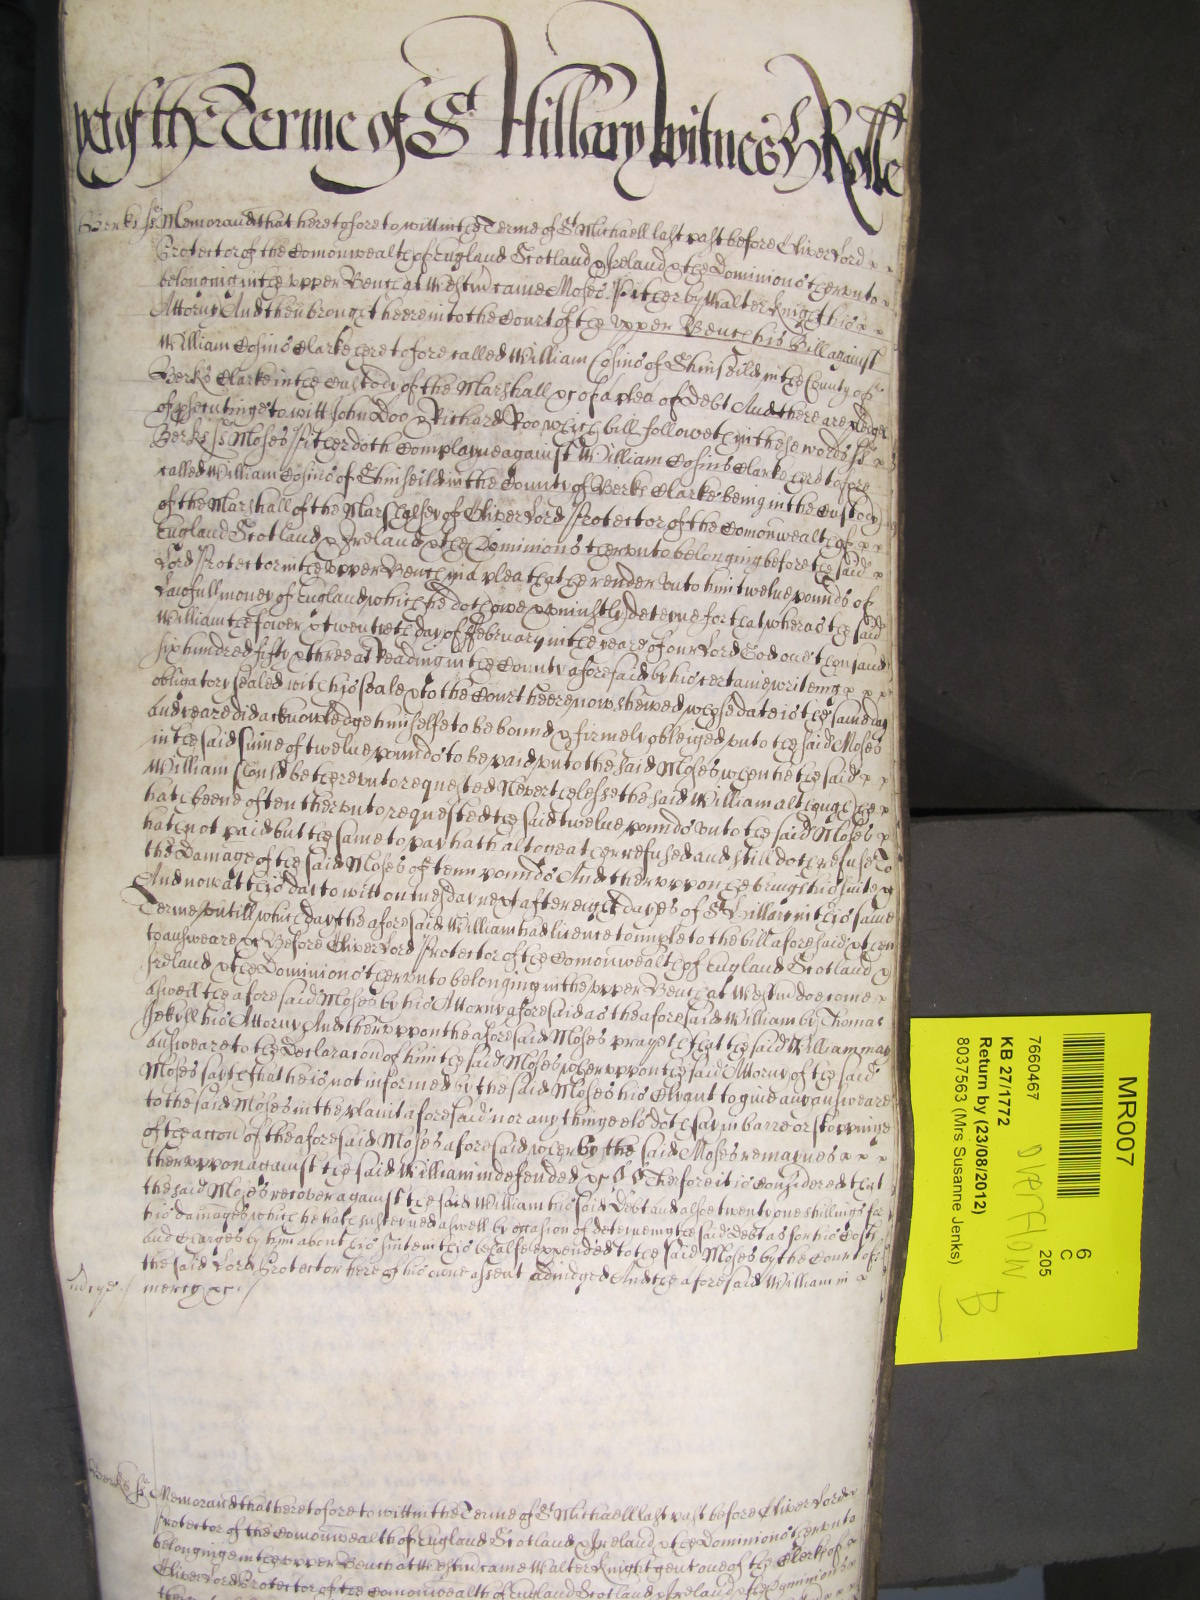 yet of the Terme of St Hillary witnes H Rolle
Berks ss Memorand that heretofore to witt in the Terme of St Michaell last past before Oliver Lord x x
Protector of the Comonwealth of England Scotland & Ireland & the Dominions therunto
belonging in the upper Bench at Westm came Moses by Walter Knight his x x
Attorny And then brought heere into the Court of the upper Bench his Bill against
William Cosins Clarke heretofore called William Cosins of Shinfeild in the County of
Berks Clarke in the Custody of the Marshall &c of a plea of Debt And there are pledges
of psecutinge to witt John Doo & Richard Roo which bill followeth in these words ss
Berks ss Moses doth Complayne against William Cosins Clarke heretofore
called William Cosins of Shinfeild in the County of Berks Clarke being in the Custody
of the Marshall of the Marshalsey of Oliver Lord Protector of the Comonwealth of x x
England Scotland & Ireland & the Dominions therunto belonging before the said x
Lord Protector in the upper Bench in a plea that he render unto him twelve pounds of
Lawfull money of England which he doth owe & uniustly deteyne for that wheras the said
William the fower & twentieth day of February in the yeare of our Lord God one thousand
six hundred fifty & three at Reading in the County aforesaid by his certaine writeing x x x
obligatory sealed with his seale & to the Court heere now shewed whose date is the same day
and yeare did acknowledge himselfe to be bound & firmely obleiged unto the said Moses
in the said sume of twelve pounds to be paid unto the said Moses when he the said x x
William should be therunto requested Neverthelesse the said William although he x
hath beene often therunto requested the said twelve pounds unto the said Moses x
hath not paid but the same to pay hath altogeather refused and still doth refuse To
the Damage of the said Moses of tenn pounds And theruppon he brings his suite &
And now at this day to witt on tuesday next after eight dayes of St Hillary in this same
Terme untill which day the aforesaid William had licence to imple to the bill aforesaid & then
to answeare &c Before Oliver Lord Protector of the Comonwealth of England Scotland &
Ireland & the Dominions therunto belonging in the upper Bench at Westm doe come x
aswell the aforesaid Moses by his Attorny aforesaid as the aforesaid William by Thomas
Jekyll his Attorny And theruppon the aforesaid Moses prayeth that the said William may
answeare to the Declaracon of him the said Moses wheruppon the said Attorny of the said
Moses sayth that he is not informed by the said Moses his Clyant to give any answeare
to the said Moses in the plaint aforesaid nor any thinge els doth say in barre or stoppinge
of the accon of the aforesaid Moses aforesaid wherby the said Moses remaynes x x x
theruppon against the said William indefended &c Therfore it is considered that
the said Moses recover against the said William his said Debt and alsoe twenty one shillings for
his damages which he hath susteyned aswell by occasion of deteyneing the said Debt as for his Costs
and Charges by him about his suite in this behalfe expended to the said Moses by the Court of
the said Lord Protector here of his owne assent adiudged And the aforesaid William in x
mercy &c /
Berks ss Memorand that heretofore to witt in the Terme of St Michaell last past before Oliver Lord
Protector of the Comonwealth of England Scotland & Ireland & the Dominions therunto
belonginge in the upper Bench at Westm came Walter Knight gent one of the Clerks of x
Oliver Lord Protector of the Comonwealth of England Scotland & Ireland & the Dominions x
MR007
6
C
205
7660467
KB 27/1772
Return by (23/08/2012)
8037563 (Mrs Susanne Jenks)
OVERFLOW
B